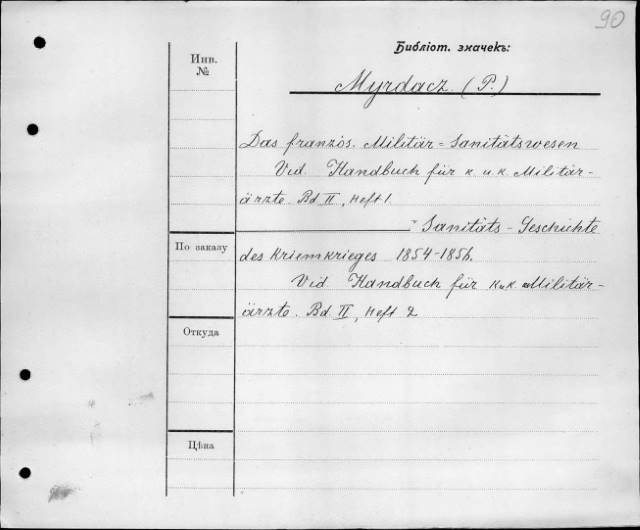 90
Библіот. значекъ:
Инв.
№
Myrdacz (P.)
Das französ. Militär = Sanitätswesen
Vid. Handbuch für k. u. k. Militär-
ärzte. Bd II, Heft 1.
" Sanitäts - Geschichte
По заказу
des Krimkrieges 1854-1856.
Vid. Handbuch für k u k Militär-
ärzte. Bd II, Heft 2
Откуда
Цѣна